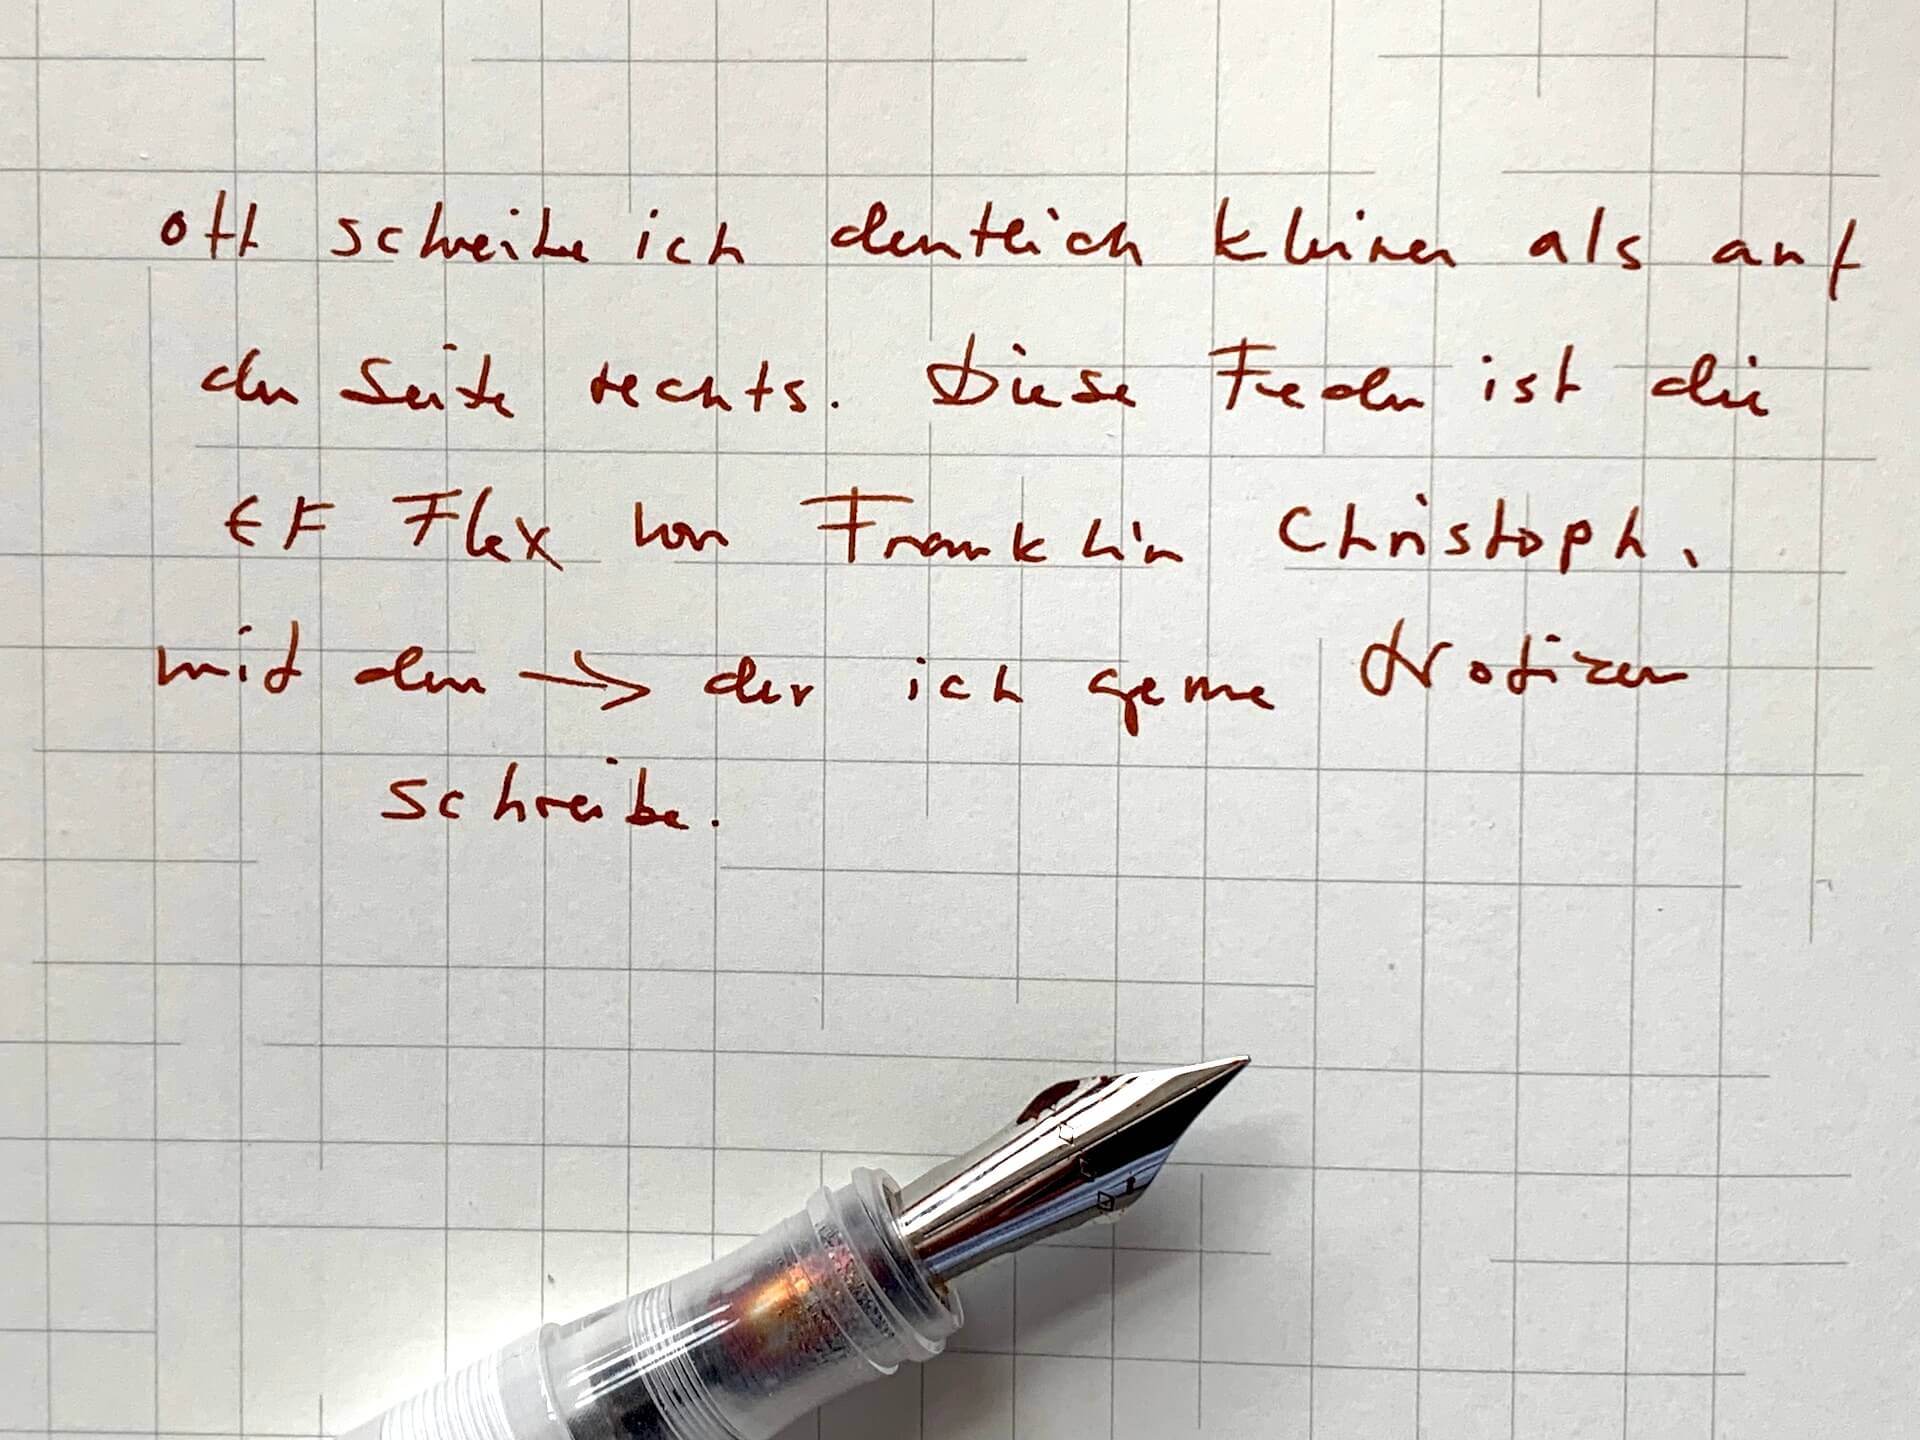 oft schreibe ich deutlich kleiner als auf
der Seite rechts. Diese Feder ist die
EF Flex von Franklin Christoph,
mit den → der ich gerne Notizen
schreibe.